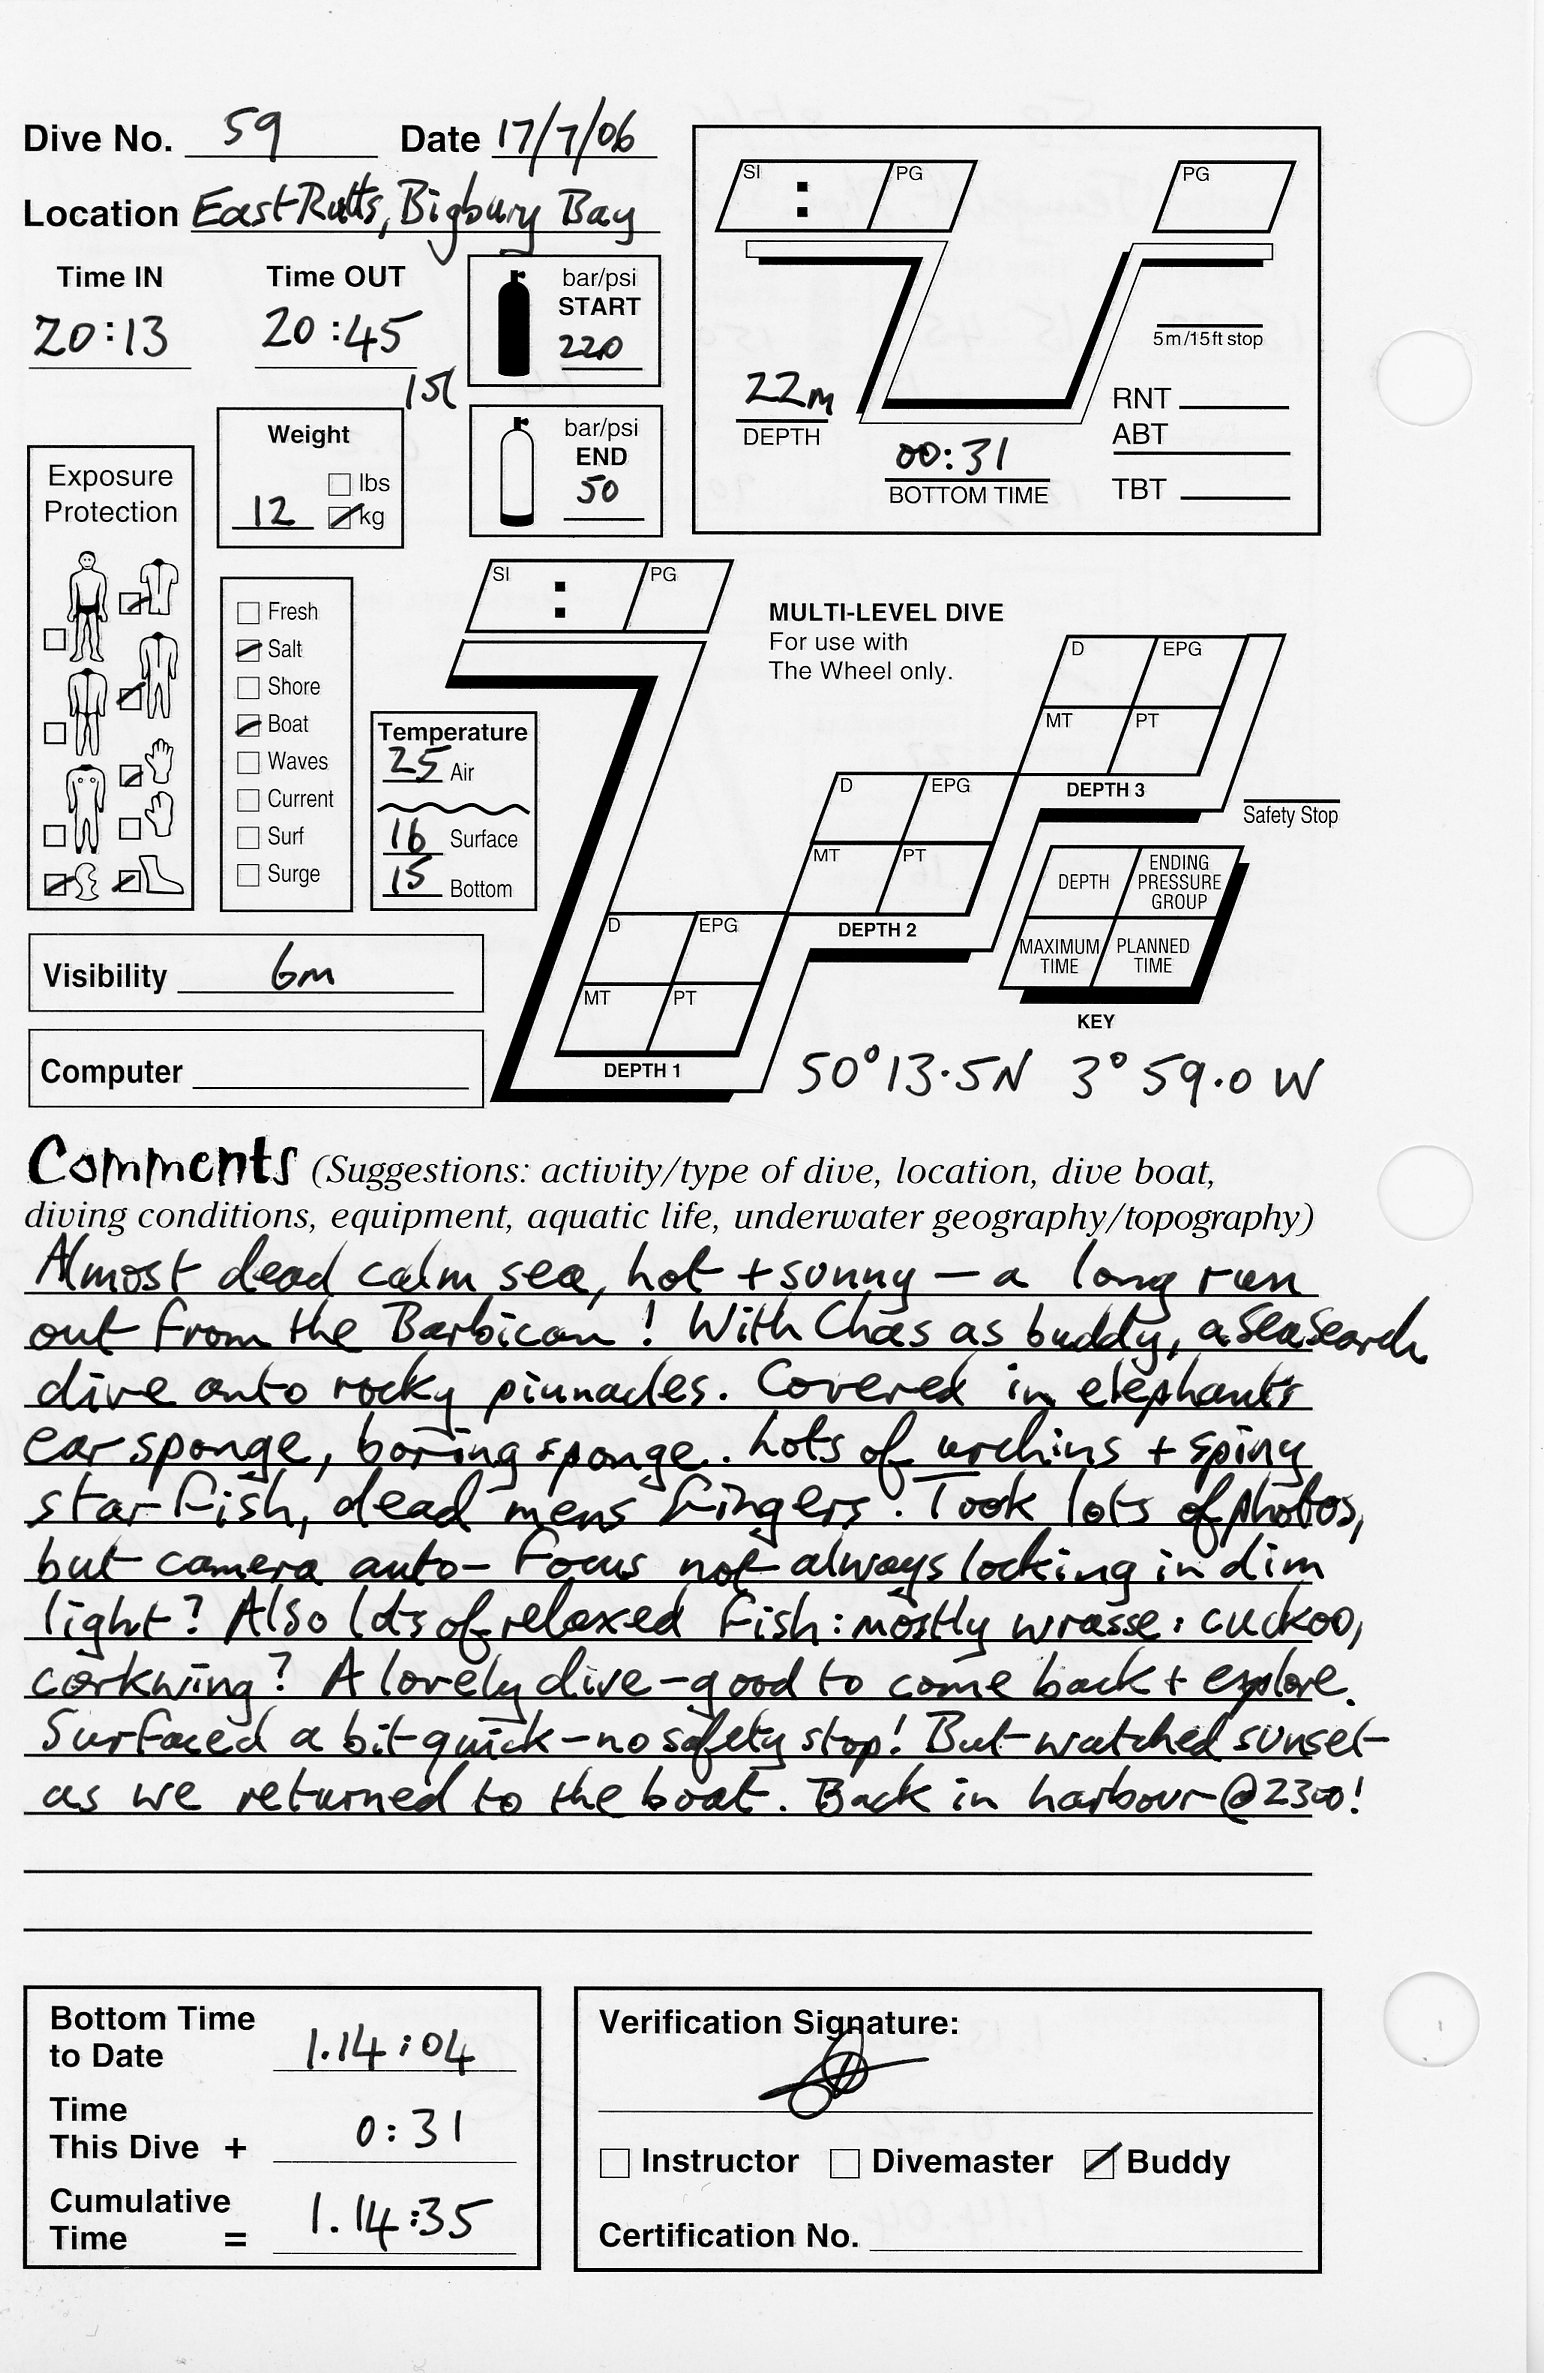 Dive No. 59 Date 17/7/06
Location East Rutts, Bigbury Bay
Time IN Time OUT
20:13 20:45
15l
bar/psi
START
220
bar/psi
END
50
Weight
lbs
12 kg
Exposure
Protection
Fresh
Salt
Shore
Boat
Waves
Current
Surf
Surge
Temperature
25 Air
16 Surface
15 Bottom
Visibility 6m
Computer
SI : PG
PG
5m/15ft stop
22m
DEPTH
00:31
BOTTOM TIME
RNT
ABT
TBT
SI : PG
MULTI-LEVEL DIVE
For use with
The Wheel only.
D EPG
MT PT
DEPTH 3
Safety Stop
D EPG
MT PT
DEPTH 2
D EPG
MT PT
DEPTH 1
DEPTH
ENDING
PRESSURE
GROUP
MAXIMUM
TIME
PLANNED
TIME
KEY
50°13.5N 3°59.0 W
Comments (Suggestions: activity/type of dive, location, dive boat,
diving conditions, equipment, aquatic life, underwater geography/topography)
Almost dead calm sea, hot + sunny – a long run
out from the Barbican! With Chas as buddy, a Seasearch
dive onto rocky pinnacles. Covered in elephants
ear sponge, boring sponge. Lots of urchins + spiny
starfish, dead mens fingers. Took lots of photos,
but camera auto-focus not always locking in dim
light? Also lots of relaxed fish: mostly wrasse: cuckoo,
corkwing? A lovely dive – good to come back + explore.
Surfaced a bit quick – no safety stop! But watched sunset
as we returned to the boat. Back in harbour @ 2300!
Bottom Time
to Date 1.14:04
Time
This Dive + 0:31
Cumulative
Time = 1.14:35
Verification Signature:
Instructor Divemaster Buddy
Certification No.